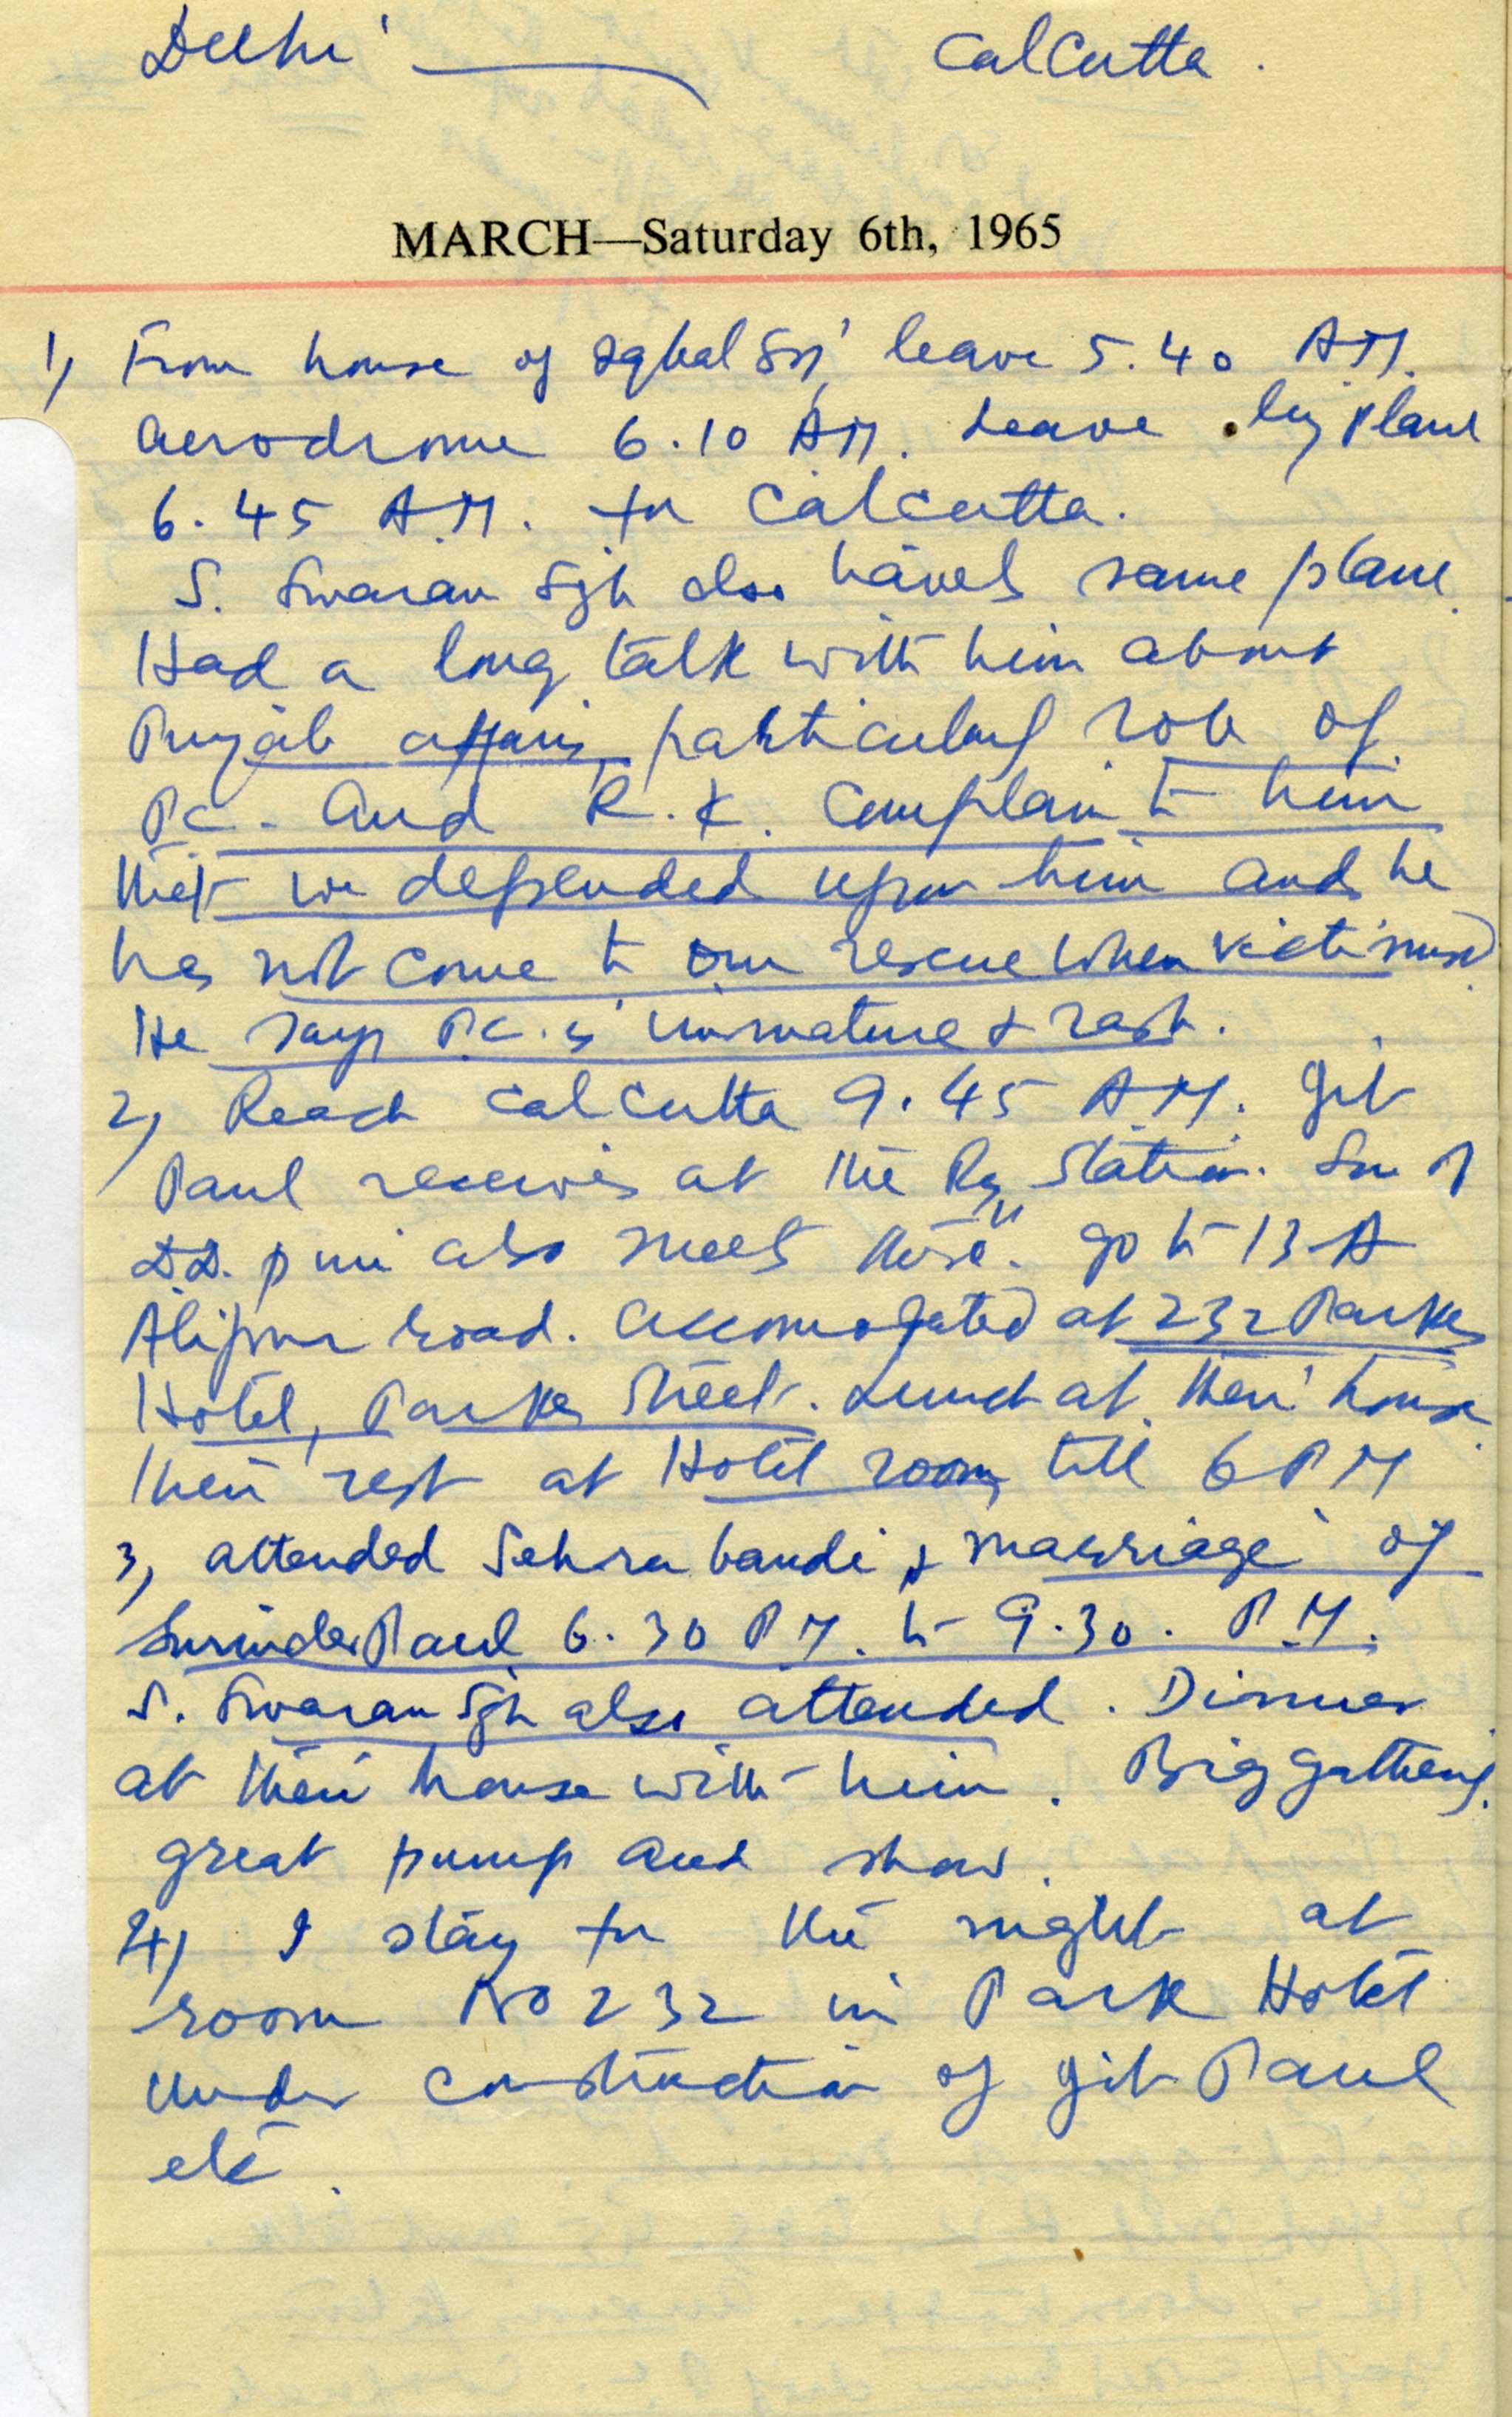 Delhi — Calcutta.
MARCH—Saturday 6th, 1965
1) From house of Iqbal Sgh leave 5.40 A.M.
aerodrome 6.10 A.M. Leave by plane
6.45 A.M. for Calcutta.
S. Swaran Sgh also travels same plane.
Had a long talk with him about
Punjab affairs, particularly role of
P.C. and R.K. Complain to him
that we depended upon him and he
has not come to our rescue when victimised
He says P.C. is immature & rash.
2) Reach Calcutta 9.45 A.M. Jit
Paul receives at the Ry Station. Son of
D.D. Puri also meets there. go to 13 A
Alipur road. accomodated at 232 Parke
Hotel, Parke Street. Lunch at their house
then rest at Hotel room till 6 PM
3) attended Sehra bandi & marriage of
Surinder Paul 6.30 P.M. to 9.30. P.M.
S. Swaran Sgh also attended. Dinner
at their house with him. Big gathering.
great pump and show.
4) I stay for the night at
room No 232 in Park Hotel
under construction of Jit Paul
etc.